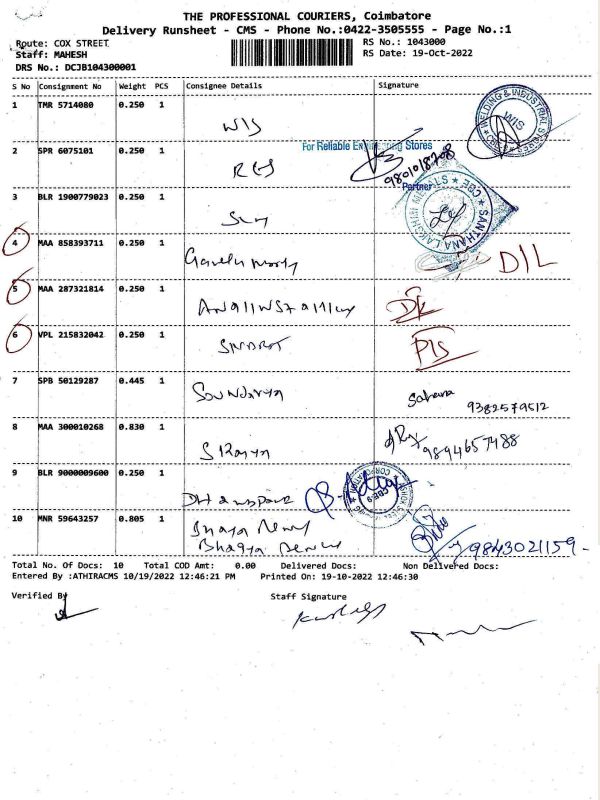 THE PROFESSIONAL COURIERS, Coimbatore
Delivery Runsheet - CMS - Phone No.:0422-3505555 - Page No.:1
Route: COX STREET RS No.: 1043000
Staff: MAHESH RS Date: 19-Oct-2022
DRS No.: DCJB104300001
S No Consignment No Weight PCS Consignee Details Signature
1 TMR 5714080 0.250 1 WIS WIS
2 SPR 6075101 0.250 1 For Reliable Engineering Stores
Partner
3 BLR 1900779023 0.250 1 SANTHANA LAKSHMI METALS CBE
4 MAA 858393711 0.250 1 DIL
5 MAA 287321814 0.250 1
6 VPL 215832042 0.250 1
7 SPB 50129287 0.445 1 Soundarya 9382579512
8 MAA 300010268 0.830 1 9894657488
9 BLR 9000009600 0.250 1 CORPORATION
10 MNR 59643257 0.805 1 9843021159
Bhagya
Total No. Of Docs: 10 Total COD Amt: 0.00 Delivered Docs: Non Delivered Docs:
Entered By :ATHIRACMS 10/19/2022 12:46:21 PM Printed On: 19-10-2022 12:46:30
Verified By Staff Signature